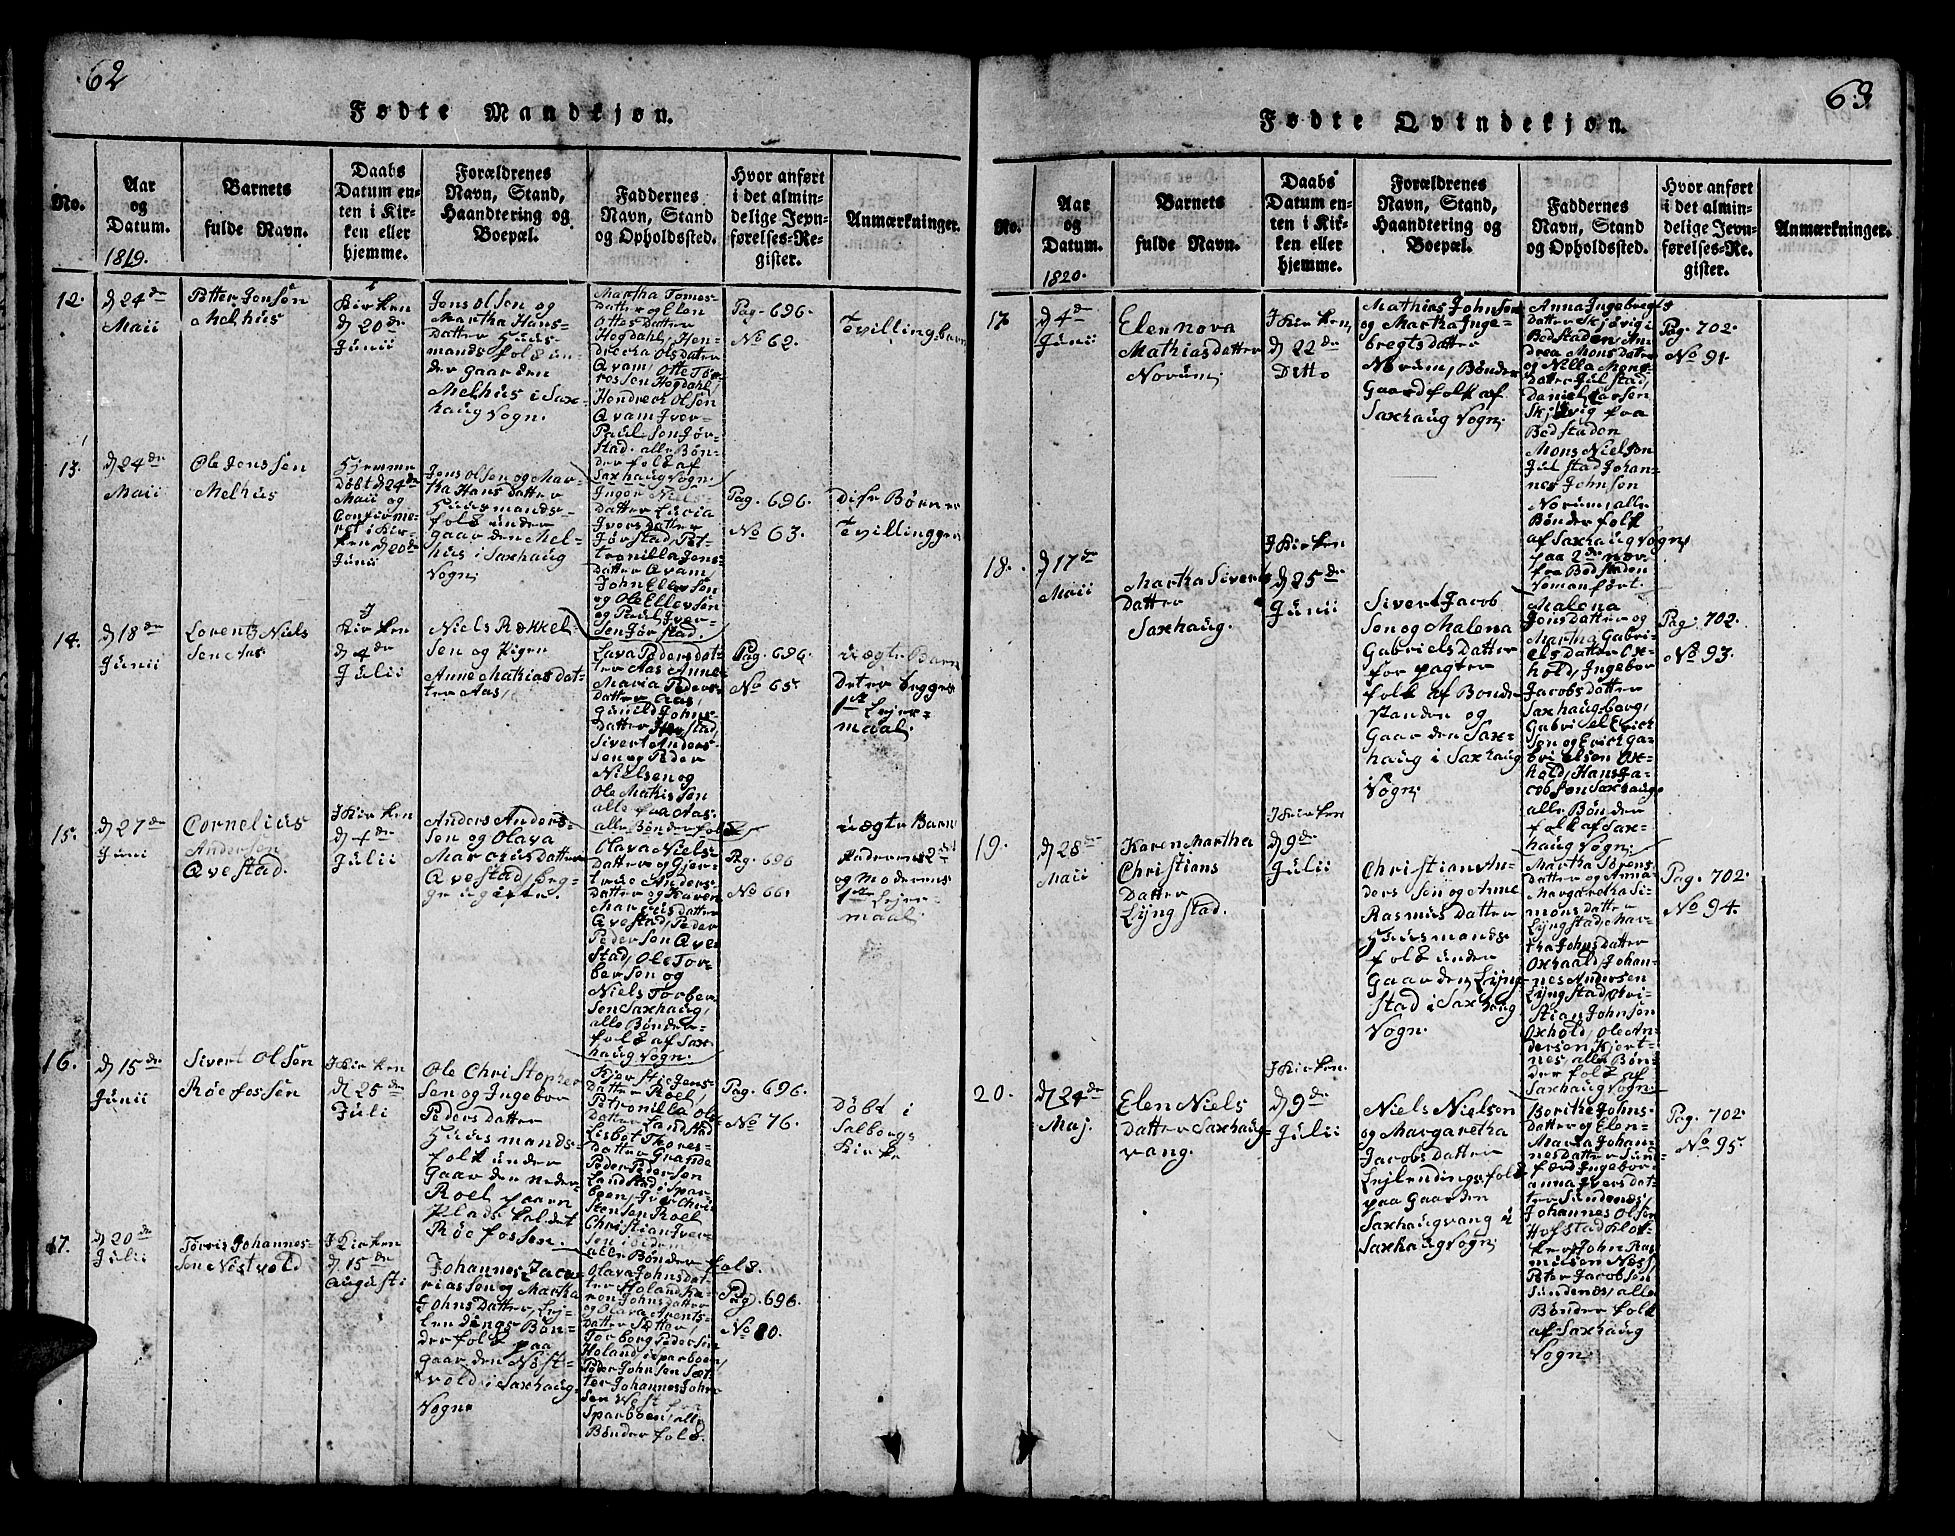 62
Fødte Mandkjøn.
No.
Aar
og
Datum.
1819.
Barnets
fulde Navn.
Daabs
Datum en-
ten i Kir-
ken eller
hjemme.
Forældrenes
Navn, Stand,
Haandtering og
Boepæl.
Faddernes
Navn, Stand
og Opholdssted.
Hvor anført
i det almin-
delige Jevn-
førelses-Re-
gister.
Anmærkninger.
12.
d 24de
Maii
Petter Jensøn
Melhus
I
Kirken
d 20de
Junii
Jens olsen og
Martha Hans-
datter Huus-
mandsfolk un-
der gaarden
Melhus i Sax-
haug Sogn.
Martha Tomes-
datter og Elen
Ottesdatter
Hogdahl, Hen-
drecka Olsdatter
Qvam, Otte To-
resen Hogdahl,
Hendrech Olsen
Qvam Iver-
Paulsen Jør-
stad. alle Bøn-
derfolk af
Saxhaug Sogn.
Pag. 696.
No 62.
Tvillingbarn
13.
d 24de
Maii
Ole Jenssen
Melhus
Hjemme
døbt d 24de
Maii og
Confirme-
ret i Kir-
ken d 20de
Junii
Jens olsen og Mar-
tha Hansdatter
Huusmands-
folk under
gaarden Mel-
hus i Saxhaug
Sogn
Inger Niels-
datter Lucia
Iversdatter
Jørstad, Pet-
tronilla Jens-
datter Qvam
John Ellevsen
og Ole Ellevsen
og Paul Iver-
sen Jørstad.
Pag. 696.
No 63.
Disse Børn er
Tvillinger
14.
d 18de
Junii
Lorentz Niels
Sen Aas
I
Kirken
d 4de
Julii
Niels Røkkel-
sen og Pigen
Anne Mathiasdat-
ter Aas,
Lava Pedersdat-
ter Aas Anne-
Maria Peders-
datter Aas
Gunild Johns-
datter
Sivert Anders-
sen og Peder
Nielsen og
Ole Mathissen
alle fra Aas.
alle Bønderfolk
Pag. 696.
No 65
uægte Barn
Det er begges
1st Lejer-
maal.
15.
d 27de
Juni
Cornelius
Andersen
Qvestad.
I Kirken
d 4de
Julii
Anders Anders-
sen og Olava
Marcusdatter
Qvestad, beg-
ge ugifte.
Olava Niels-
datter og Gjer-
true Anders-
datter og Karen
Marcusdatter
Qvestad, Peder
Pedersen Qve
stad, Ole Tor-
bersen og
Niels Torber-
sen Saxhaug,
alle Bønder-
folk af Sax-
haug Sogn.
Pag. 696
No 66.
uægte Barn
Faderens 2det
og Moderens
1ste Lejer-
maal.
16.
d 15de
Junii
Sivert Olsen
Røefossen
I Kirken
d 25de
Juli
Ole Christopher
Sen og Ingebor
Pedersdatter
Huusmands-
folk under
Gaarden Neder-
Roel paa en
Plads kaldet
Røefossen.
Kjerstie Jens-
datter Roel,
Petronilla Ols
datter Landstad
Lisbet Thores-
datter Grande
Peder Pedersen
Landstad i Spar-
boen, Iver Chri
stensen Roel
Christian Iver-
sen
alle Bønder
folk.
Pag. 696.
No 76.
Døbt i
Salbergs
Kirke
17.
d 20de
Julii
Johannes-
sen Nestvold
I Kirken
d 15de
augusti
Johannes Zaca-
riassen og Martha
Johnsdatter, Lej-
lendings Bøn-
derfolk paa
gaarden Nøst-
vold i Saxhaug
Sogn
Olava Johnsdat-
ter Holand Ka-
ren Johnsdatter
og Olava Arents-
datter Sætter,
Torborg Pedersen
Holand i Sparboen,
Peder Johnsen Sæt-
ter Johannes John-
sen West fra
Sparboen, alle
Bønderfolk.
Pag. 696.
No 80.
63.
Fødte Qvindekjøn.
No.
Aar
og
Datum.
1820.
Barnets
fulde Navn.
Daabs
Datum en-
ten i Kir-
ken eller
hjemme.
Forældrenes
Navn, Stand,
Haandtering og
Boepæl.
Faddernes
Navn, Stand
og Opholdssted.
Hvor anført
i det almin-
delige Jevn-
førelses-Re-
gister.
Anmærkninger.
17.
d 4de
Junii
Elennova
Mathiasdatter
Norum,
I Kirken,
d 22de
Ditto
Mathias Johnsen
og Martha Inge-
bregtsdatter
Norum, Bønder
Gaardfolk af
Saxhaug Sogn;
Anna Ingebregts
datter Skjøvig i
Bedstaden, An
drea Monsdater
og Nilla Mons-
datter Julstad,
Daniel Larsen
Skjøvig fra
Bedstaden
Mons Nielsen
Julstad Johan-
nes Johnsen
Norum, alle
Bønderfolk
af Saxhaug Sogn,
paa 2de nær
fra Bedstaden
som anført.
Pag. 702.
No 91.
18.
d 17de
Maii
Martha Siverts
datter
Saxhaug.
I Kirken
d 25de
Junii
Sivert Jacob
Sen og Malena
Gabrielsdatter
forpagter
folk af Bonde
standen og
Gaarden Sax-
haug i Saxhaug
Sogn;
Malena
Jonsdatter og
Martha Gabri-
elsdatter Ox-
hold, Ingebor
Jacobsdatter
Saxhaugsberg,
Gabriel Erich
Sen og Erich Ga-
brielsen Ox-
hold, Hans Ja-
cobsen Saxhaug,
alle Bønder
folk af Sax-
haug Sogn;
Pag. 702.
No 93.
19.
d 28de
Maii
Karen Martha
Christians
Datter
Lyngstad.
I Kirken
d 9de
Julii
Christian An-
dersSen og Anne
Rasmusdatter
Huusmands-
folk under
Gaarden, Lyng-
stad i Saxhaug
Sogn.
Martha Sørens-
datter og Anna
Margaretha Si-
monsdatter
Lyngstad, Mar-
tha Johnsdatter
Oxhaald, Johan-
nes Andersen
Lyngstad, Kri-
stian Johnsen
Oxhold, Ole An-
dersen Hjert-
nes, alle Bøn-
derfolk af
Saxhaug Sogn.
Pag. 702.
No 94.
20.
d 24de
Maj.
Elen Niels
datter Saxhaug-
vang.
I Kirken.
d 9de
Julii
Niels Nielsen
og Margaretha
Jacobsdatter
Lejlendingsfolk
paa Gaarden
Saxhaugvang i
Saxhaug Sogn;
Borithe Johns-
datter og Elen-
Marta Johan-
nesdatter Sund-
færd Ingebor-
anna Iversdat-
ter Sundnæs,
Johannes Olsen
Hofstad Klok-
ker, John Ras-
musen Næss,
Peter Jacobsen
Sundnæs, alle
Bønderfolk
af Saxhaug
Sogn;
Pag. 702.
No 95.